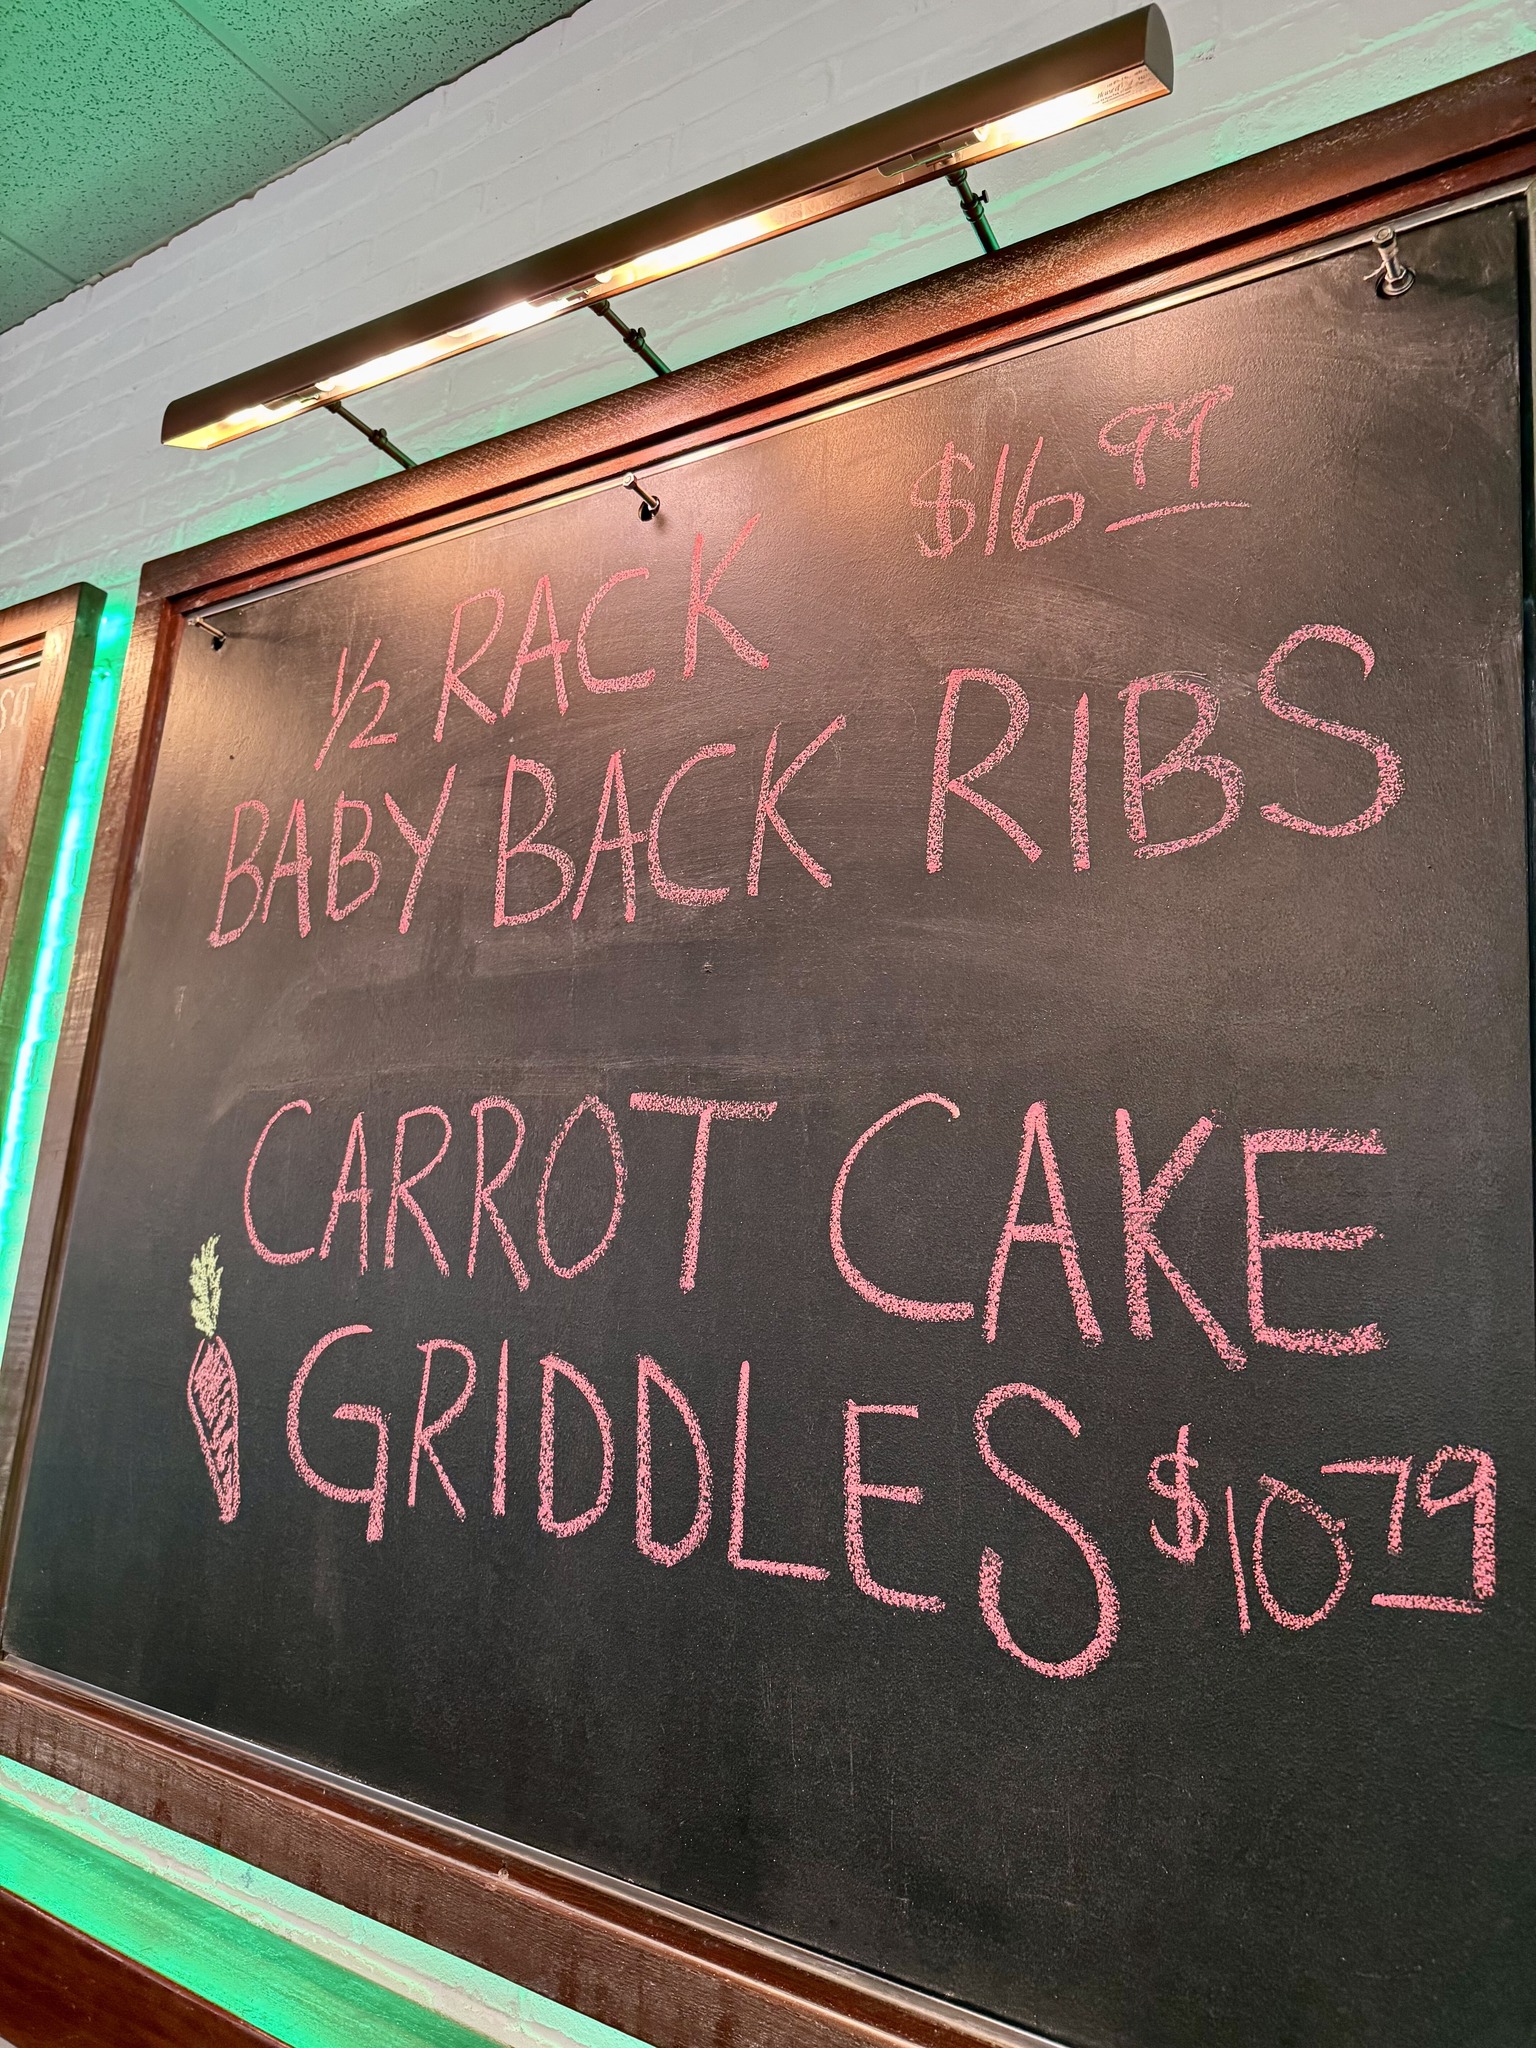 $16 99
1/2 RACK
BABY BACK RIBS
CARROT CAKE
GRIDDLES $10 79